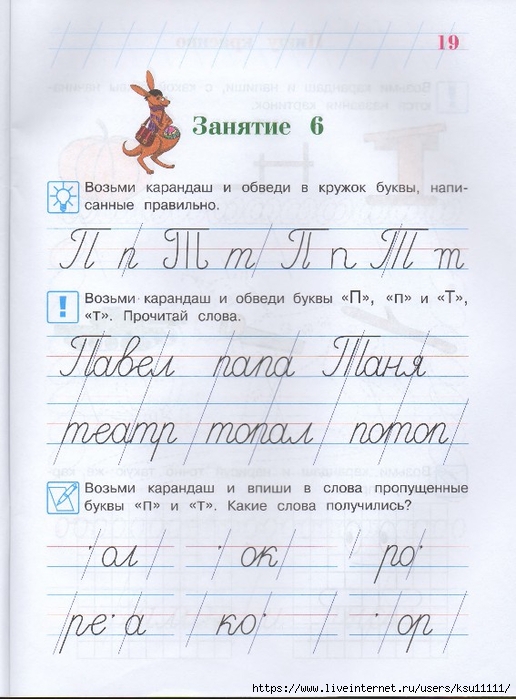 19
Занятие 6
Возьми карандаш и обведи в кружок буквы, напи-
санные правильно.
П п Т т П п Т т
Возьми карандаш и обведи буквы «П», «п» и «Т»,
«т». Прочитай слова.
Павел папа Таня
театр топал потоп
Возьми карандаш и впиши в слова пропущенные
буквы «п» и «т». Какие слова получились?
ол ок ро
ре а ко ор
https://www.liveinternet.ru/users/ksu11111/